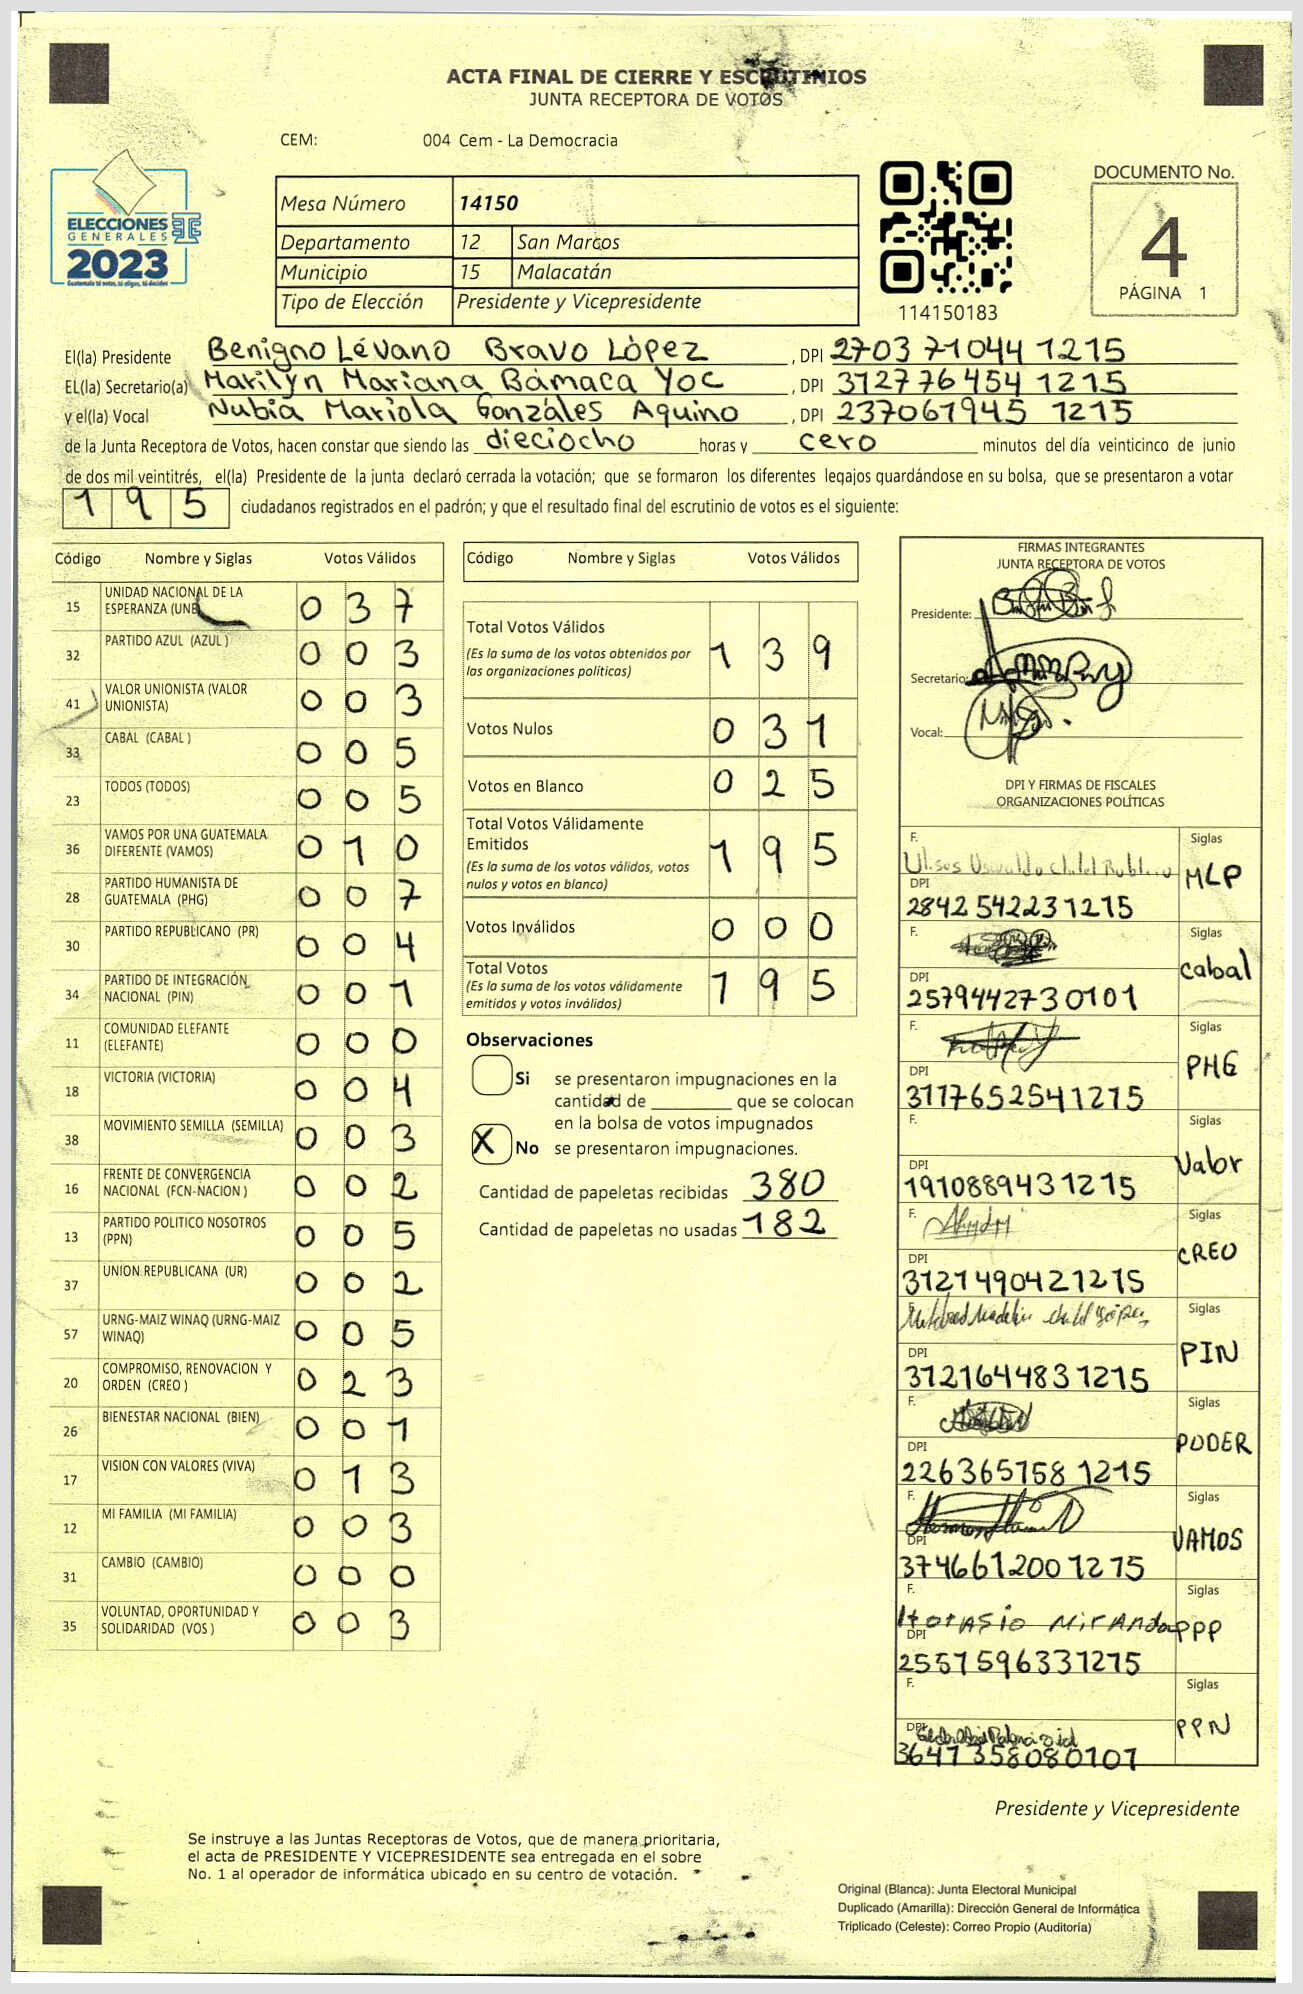 ACTA FINAL DE CIERRE Y ESCRUTINIOS
JUNTA RECEPTORA DE VOTOS
CEM: 004 Cem - La Democracia
ELECCIONES
GENERALES
2023
Guatemala tú votas, tú eliges, tú decides
Mesa Número 14150
Departamento 12 San Marcos
Municipio 15 Malacatán
Tipo de Elección Presidente y Vicepresidente
114150183
DOCUMENTO No.
4
PÁGINA 1
El(la) Presidente Benigno Lévano Bravo López , DPI 2703 71044 1215
EL(la) Secretario(a) Marilyn Mariana Bámaca Yoc , DPI 312776454 1215
y el(la) Vocal Nubia Mariola Gonzáles Aquino , DPI 237061945 1215
de la Junta Receptora de Votos, hacen constar que siendo las dieciocho horas y cero minutos del día veinticinco de junio
de dos mil veintitrés, el(la) Presidente de la junta declaró cerrada la votación; que se formaron los diferentes legajos guardándose en su bolsa, que se presentaron a votar
195 ciudadanos registrados en el padrón; y que el resultado final del escrutinio de votos es el siguiente:
Código Nombre y Siglas Votos Válidos
15 UNIDAD NACIONAL DE LA ESPERANZA (UNE 037
32 PARTIDO AZUL (AZUL ) 003
41 VALOR UNIONISTA (VALOR UNIONISTA) 003
33 CABAL (CABAL ) 005
23 TODOS (TODOS) 005
36 VAMOS POR UNA GUATEMALA DIFERENTE (VAMOS) 010
28 PARTIDO HUMANISTA DE GUATEMALA (PHG) 007
30 PARTIDO REPUBLICANO (PR) 004
34 PARTIDO DE INTEGRACIÓN NACIONAL (PIN) 001
11 COMUNIDAD ELEFANTE (ELEFANTE) 000
18 VICTORIA (VICTORIA) 004
38 MOVIMIENTO SEMILLA (SEMILLA) 003
16 FRENTE DE CONVERGENCIA NACIONAL (FCN-NACION ) 002
13 PARTIDO POLITICO NOSOTROS (PPN) 005
37 UNION REPUBLICANA (UR) 002
57 URNG-MAIZ WINAQ (URNG-MAIZ WINAQ) 005
20 COMPROMISO, RENOVACION Y ORDEN (CREO ) 023
26 BIENESTAR NACIONAL (BIEN) 001
17 VISION CON VALORES (VIVA) 013
12 MI FAMILIA (MI FAMILIA) 003
31 CAMBIO (CAMBIO) 000
35 VOLUNTAD, OPORTUNIDAD Y SOLIDARIDAD (VOS ) 003
Código Nombre y Siglas Votos Válidos
Total Votos Válidos 139
(Es la suma de los votos obtenidos por
las organizaciones políticas)
Votos Nulos 031
Votos en Blanco 025
Total Votos Válidamente
Emitidos 195
(Es la suma de los votos válidos, votos
nulos y votos en blanco)
Votos Inválidos 000
Total Votos 195
(Es la suma de los votos válidamente
emitidos y votos inválidos)
Observaciones
Si se presentaron impugnaciones en la
cantidad de ________ que se colocan
en la bolsa de votos impugnados
X No se presentaron impugnaciones.
Cantidad de papeletas recibidas 380
Cantidad de papeletas no usadas 182
FIRMAS INTEGRANTES
JUNTA RECEPTORA DE VOTOS
Presidente:
Secretario:
Vocal:
DPI Y FIRMAS DE FISCALES
ORGANIZACIONES POLÍTICAS
F. Siglas
MLP
DPI
2842542231215
F. Siglas
cabal
DPI
2579442730101
F. Siglas
PHG
DPI
3117652541215
F. Siglas
Valor
DPI
1910889431215
F. Siglas
CREO
DPI
3121490421215
F. Siglas
PIN
DPI
3121644831215
F. Siglas
PODER
DPI
2263657581215
F. Siglas
VAMOS
DPI
3746612001215
F. Siglas
Horasio Miranda PPP
DPI
2551596331215
F. Siglas
PPN
DPI
3647358080101
Presidente y Vicepresidente
Se instruye a las Juntas Receptoras de Votos, que de manera prioritaria,
el acta de PRESIDENTE Y VICEPRESIDENTE sea entregada en el sobre
No. 1 al operador de informática ubicado en su centro de votación.
Original (Blanca): Junta Electoral Municipal
Duplicado (Amarilla): Dirección General de Informática
Triplicado (Celeste): Correo Propio (Auditoría)